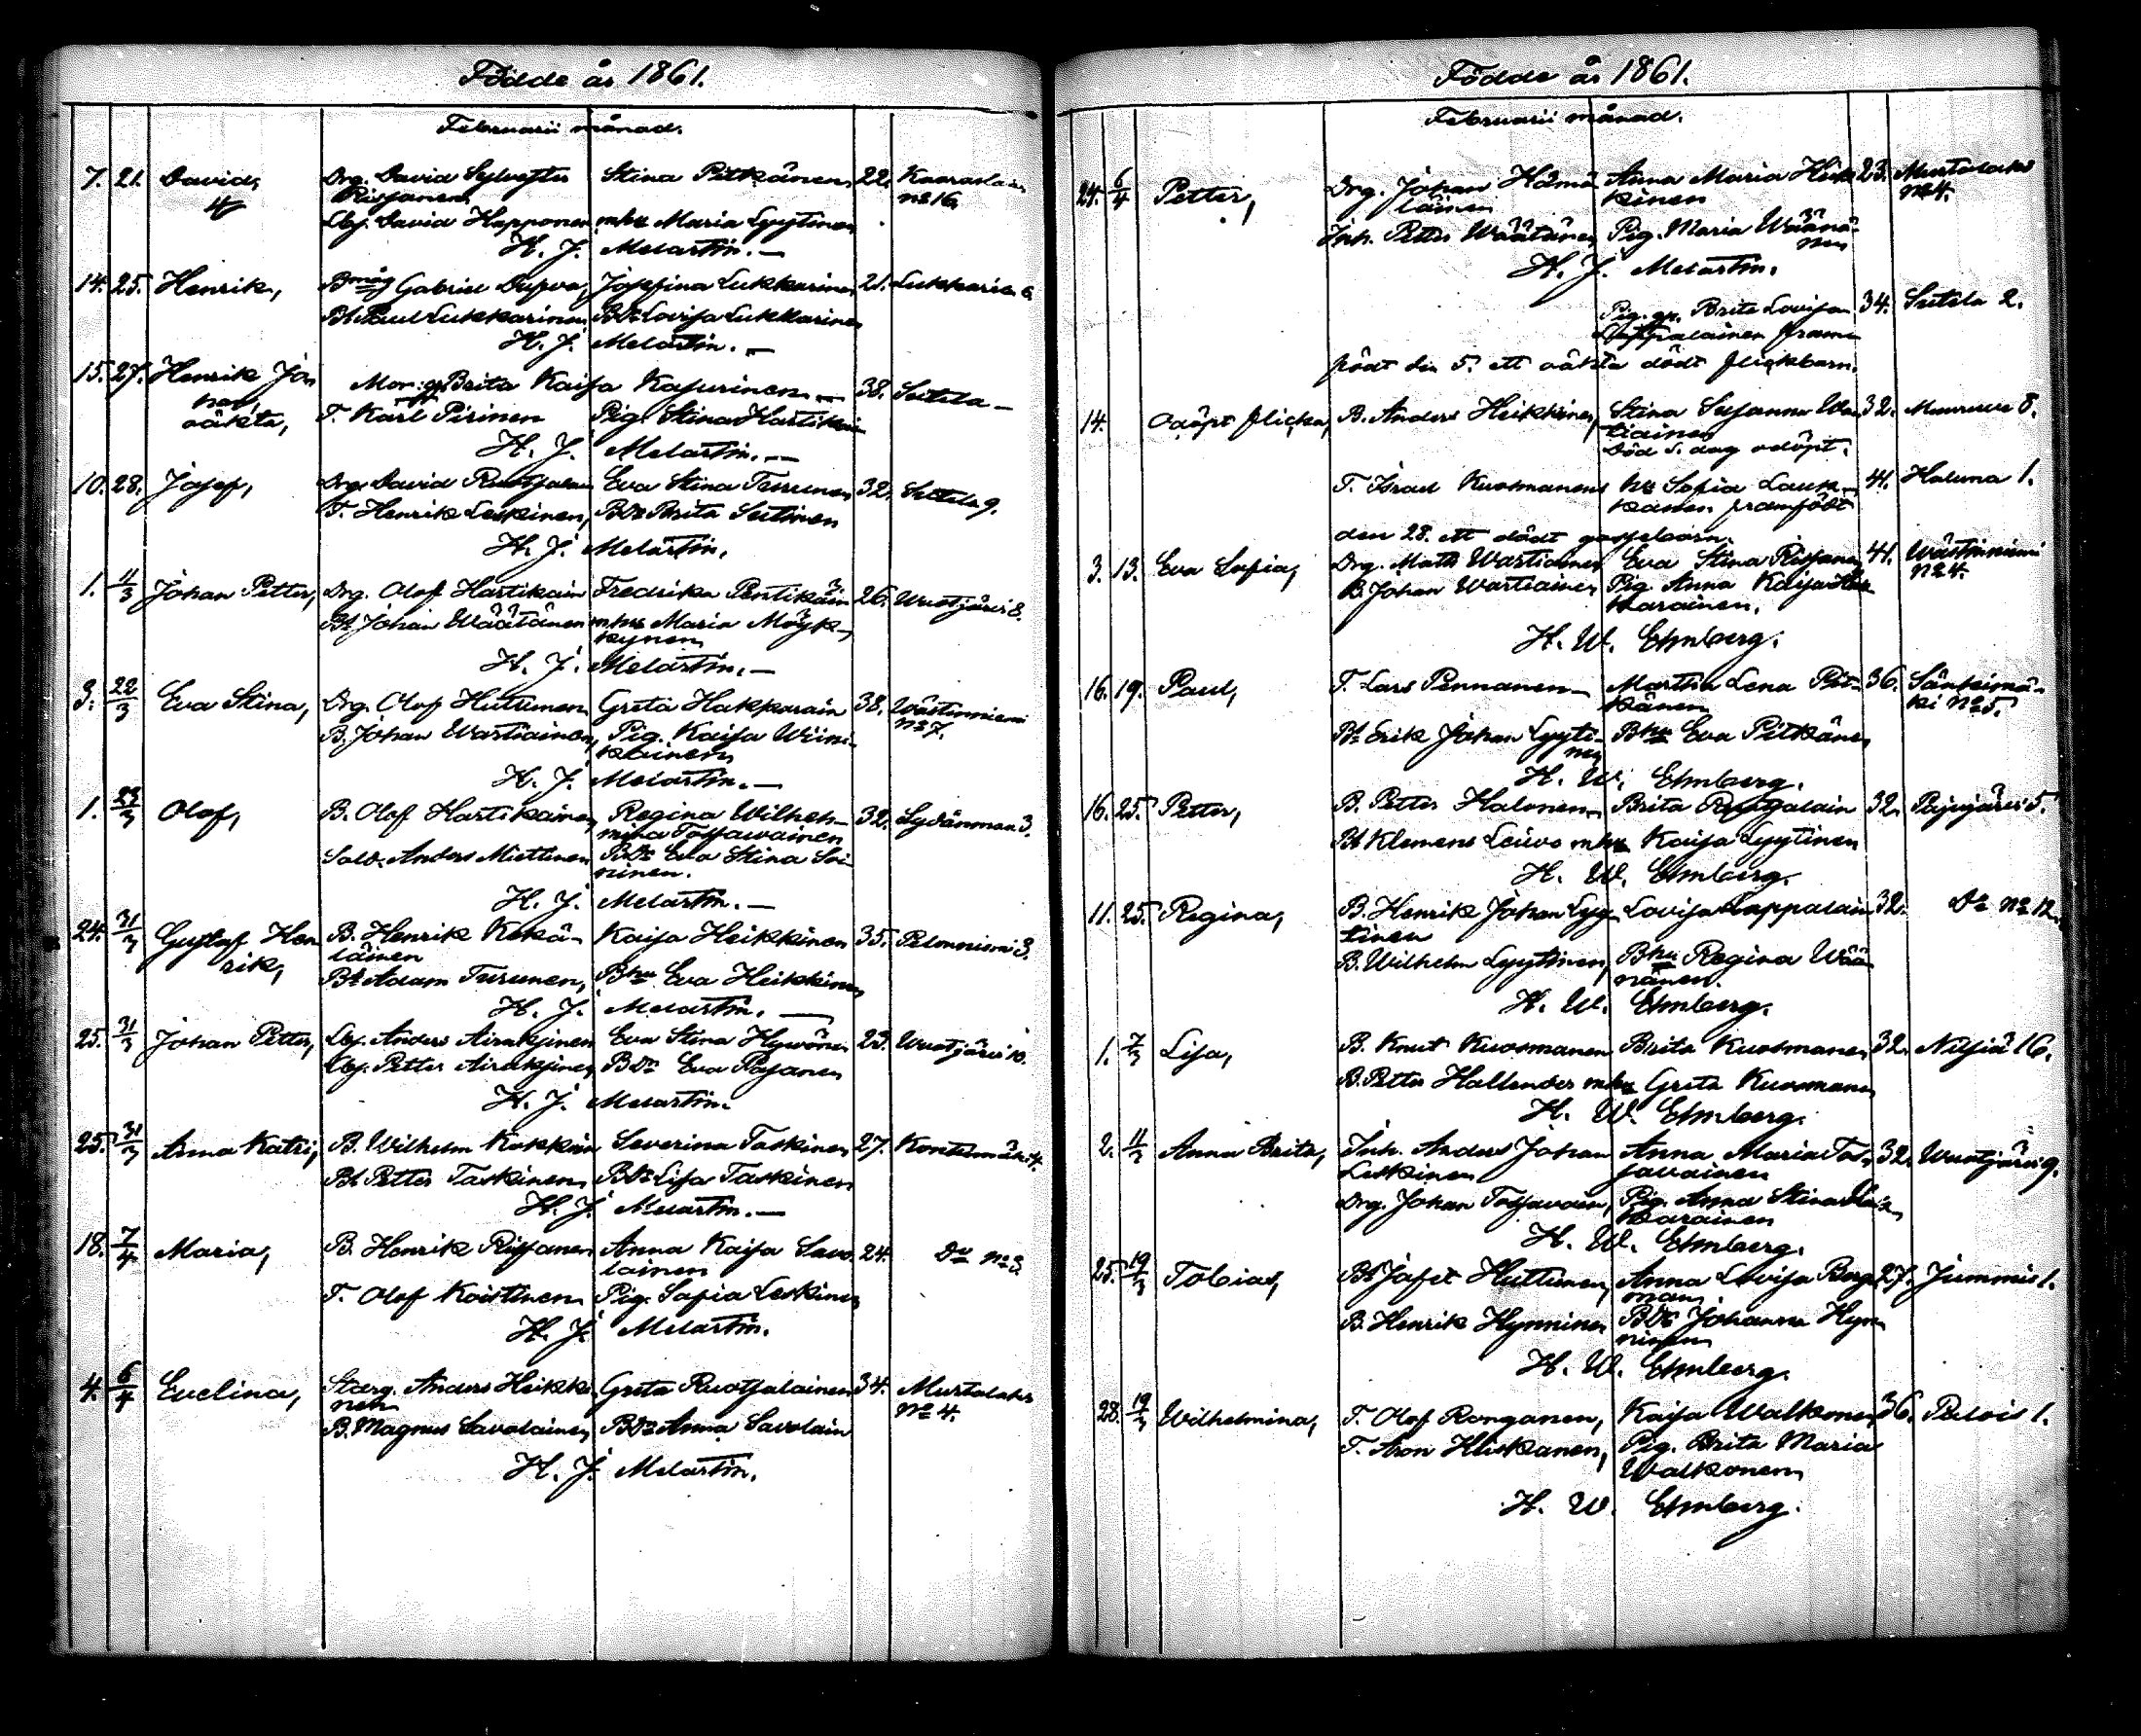 Födde år 1861.
Februarii månad.
7. 21. David, Drg. David Sylvester Stina Pitkänen 22. Kaaraslax
Risjanen No 16.
Lbj. David Happonen mhu Maria Lyytinen
H. J. Melartin.
14. 25. Henrik, Gabriel Josefina Lukkarinen 21. Lukkarila 6.
Bs. Paul Lukkarinen BDr Lovisa Lukkarinen
H. J. Melartin.
15. 27. Henrik Jo Brita Kaisa Kasurinen 38. Sutela
han,
oäkta, T. Karl Pirinen Pig. Stina Hartikai
H. J. Melartin.
10. 28. Josef, Drg. David Ruotsalain Eva Stina Turunen 32. Sutela 9.
T. Henrik Leskinen, BDr Brita Sutinen
H. J. Melartin.
1. 11/3 Johan Petter, Drg. Olof Hartikain Fredrika Pentikäin 26. Wuotjärvi 8.
Bs. Johan Wäätänen mhu Maria Möyk-
kynen
H. J. Melartin.
3. 22/3 Eva Stina, Drg. Olof Huttunen Greta Hakkarain 38. Wästinniemi
B. Johan Wartiainen, Pig. Kaisa Wiini- No 7.
kainen
H. J. Melartin.
1. 23/3 Olof, B. Olof Hartikainen, Regina Wilhel- 32. Sydänmaa 3.
mina Tossawainen
Sold. Anders Miettinen BDr Eva Stina Soi-
ninen.
H. J. Melartin.
24. 31/3 Gustaf Hen B. Henrik Kekä- Kaisa Heikkinen 35. Pelonniemi 3.
rik, läinen
Bs. Adam Turunen, Bhu Eva Heikkinen
H. J. Melartin.
25. 31/3 Johan Petter, Lbj. Anders Airaksinen Eva Stina Hyvönen 23. Wuotjärvi 10.
Lbj. Petter Airaksinen, BDr Eva Pasanen
H. J. Melartin.
25. 31/3 Anna Katri, B. Wilhelm Kokkoin Severina Taskinen 27. Kontinmäki 4.
Bs. Petter Taskinen BDr Lisa Taskinen
H. J. Melartin.
18. 7/4 Maria, B. Henrik Rissanen Anna Kaisa Savo 24. Do No 3.
lainen
T. Olof Koistinen Pig. Sofia Leskinen
H. J. Melartin.
4. 6/4 Evelina, Anders Heikki Greta Ruotsalainen 34. Murtolaks
nen No 4.
B. Magnus Savolainen, BDr Anna Savolain
H. J. Melartin.
Födde år 1861.
Februarii månad.
24. 6/4 Petter, Drg. Johan Hämä Anna Maria Heik 23. Murtolaks
läinen kinen No 4.
Inh. Petter Wäätänen Pig. Maria Wäänä-
nen
H. J. Melartin.
Pig. Brita Lovisa 34. Sutela 2.
Lappalainen fram-
födt den 5. ett oäkta dödt flickbarn.
14. Odöpt flicka, B. Anders Heikkinen, Stina Susanna War 32. Muuruve 8.
tiainen
Död s. dag odöpt.
T. Israel Kuosmanens hu Sofia Lauk- 41. Haluna 1.
kanen framfödt
den 28. ett dödt gossebarn.
3. 13. Eva Sofia, Drg. Matts Wartiainen Eva Stina Rissanen 41. Wästinniemi
B. Johan Wartiainen Pig. Anna Kaisa Hak No 4.
karainen.
H. W. Elmberg.
16. 19. Paul, T. Lars Pennanen Martha Lena Pit- 36. Sänkimä-
känen ki No 5.
Bs. Erik Johan Lyyti- Bhu Eva Pitkänen
nen
H. W. Elmberg.
16. 25. Petter, B. Petter Halonen Brita Ruotsalain 32. Pajujärvi 5.
Bs Klemens Leivo mhu Kaisa Lyytinen
H. W. Elmberg.
11. 25. Regina, B. Henrik Johan Lyy- Lovisa Lappalain 32. Do No 12.
tinen
B. Wilhelm Lyytinen, Bhu Regina Wää-
nänen.
H. W. Elmberg.
1. 7/3 Lisa, B. Knut Kuosmanen Brita Kuosmanen 32. Nilsiä 16.
B. Petter Hallender mhu Greta Kuosmanen
H. W. Elmberg.
2. 11/3 Anna Brita, Inh. Anders Johan Anna Maria Tos- 32. Wuotjärvi 9.
Leskinen savainen
Drg. Johan Tossavain, Pig. Anna Stina Hak
karainen
H. W. Elmberg.
25. 19/3 Tobias, Bs Jafet Huttunen, Anna Lovisa Berg 27. Jumminen 1.
man.
B. Henrik Hynninen BDr Johanna Hyn-
ninen
H. W. Elmberg.
28. 19/3 Wilhelmina, T. Olof Ronganen, Kaisa Walkonen 36. Palois 1.
T. Aron Huskanen, Pig. Brita Maria
Walkonen
H. W. Elmberg.